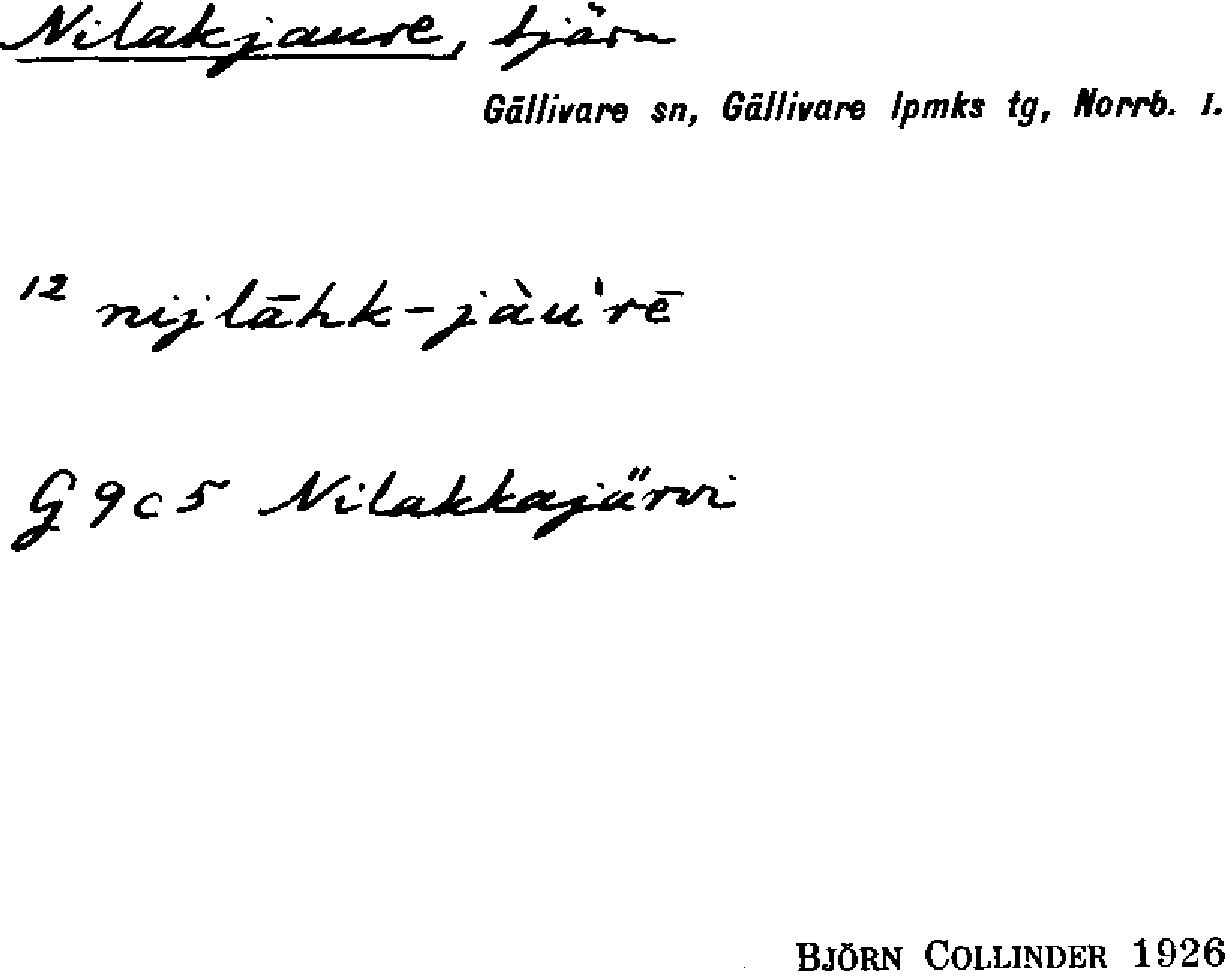 Nilakjaure, tjärn
Gällivare sn, Gällivare lpmks tg, Norrb. l.
12 nijlāhk-jàu'rē
G 9 c 5 Nilakkajärvi
BJÖRN COLLINDER 1926